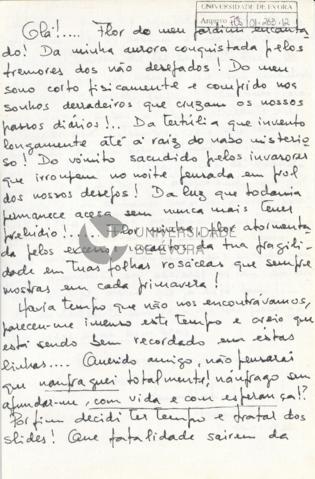 UNIVERSIDADE DE ÉVORA
Olá!.... Flor do meu jardim encanta-
do! Da minha aurora conquistada pelos
tremores dos não desejados! Do meu
sono corto fisicamente e comprido nos
sonhos derradeiros que cruzam os nossos
passos diários!.. Da tertúlia que invento
longamente até à raiz do nabo misterio-
so! Do vómito sacudido pelos invasores
que irrompem na noite pensada em pol
dos nossos desejos! Da luz que todavia
permanece acesa sem nunca mais teres
prelúdio!.. Flor, minha flor atormenta-
da pelos encantos da tua fragili-
dade em tuas folhas rosáceas que sempre
mostras em cada primavera!
UNIVERSIDADE
DE ÉVORA
Havia tempo que não nos encontrávamos,
pareceu-me imenso este tempo e creio que
está sendo bem recordado em estas
linhas.... Querido amigo, não pensarás
que naufraguei totalmente! náufrago sem
afundar-me, com vida e com esperança!?
Por fim decidi ter tempo e tratar dos
slides! Que fatalidade sairem da